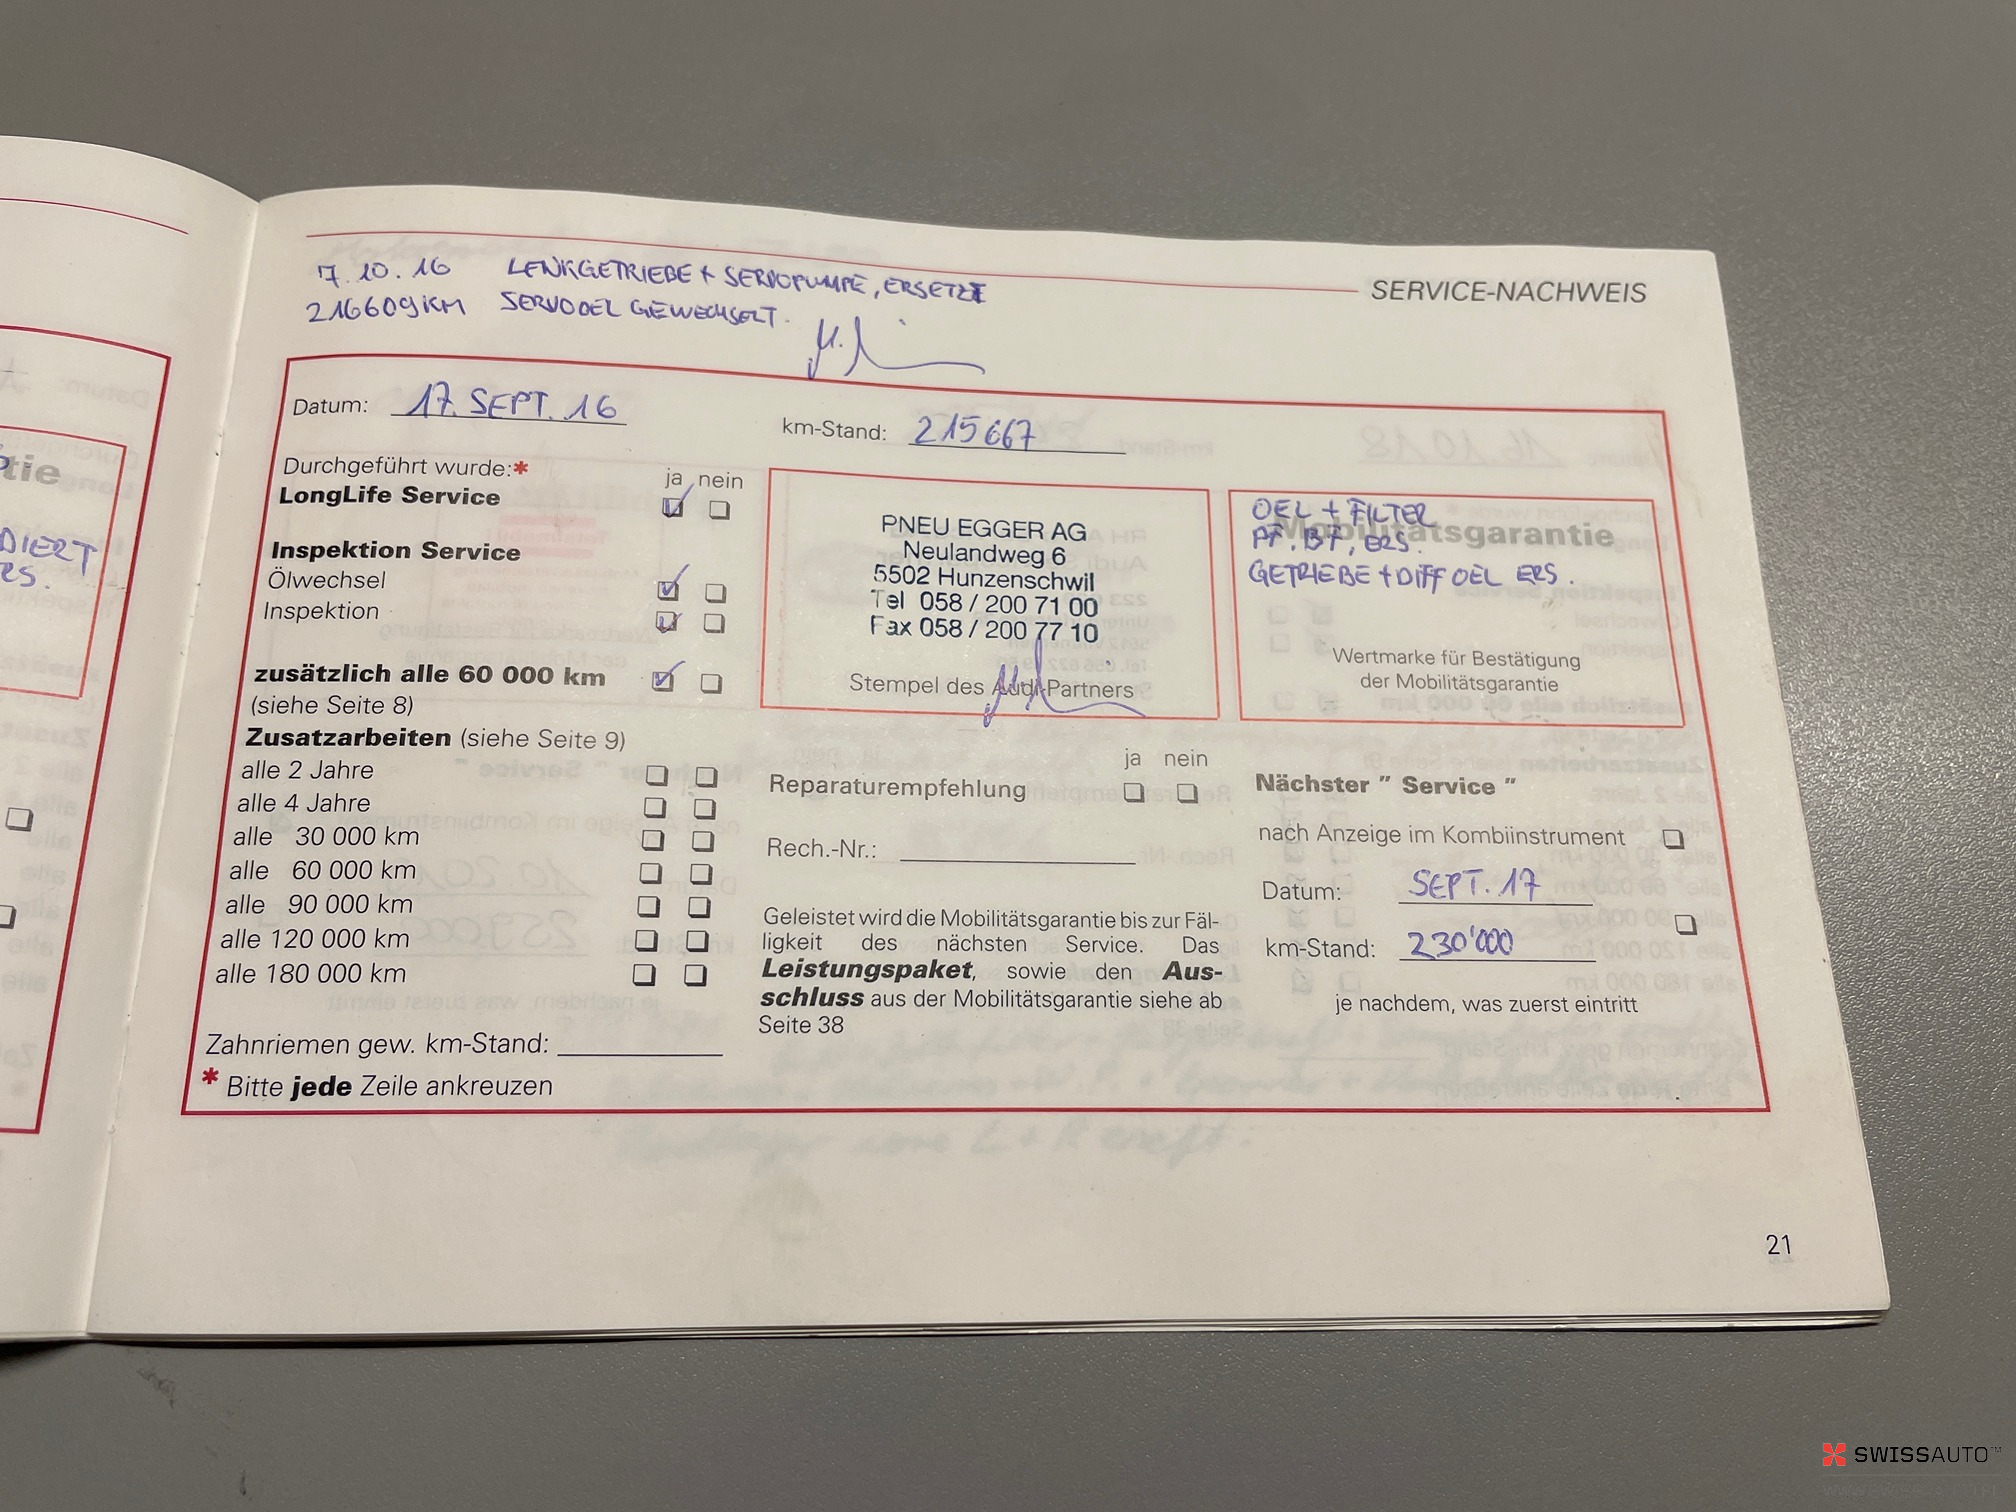 SERVICE-NACHWEIS
7.10.16 LENKGETRIEBE + SERVOPUMPE, ERSETZT
216609KM SERVOOEL GEWECHSELT.
Datum: 17. SEPT. 16
km-Stand: 215667
Durchgeführt wurde:*
ja nein
LongLife Service
Inspektion Service
Ölwechsel
Inspektion
zusätzlich alle 60 000 km
(siehe Seite 8)
Zusatzarbeiten (siehe Seite 9)
alle 2 Jahre
alle 4 Jahre
alle 30 000 km
alle 60 000 km
alle 90 000 km
alle 120 000 km
alle 180 000 km
Zahnriemen gew. km-Stand:
* Bitte jede Zeile ankreuzen
PNEU EGGER AG
Neulandweg 6
5502 Hunzenschwil
Tel 058 / 200 71 00
Fax 058 / 200 77 10
Stempel des Audi-Partners
OEL + FILTER
Mobilitätsgarantie
PF, BF, ERS.
GETRIEBE + DIFF OEL ERS.
Wertmarke für Bestätigung
der Mobilitätsgarantie
ja nein
Reparaturempfehlung
Rech.-Nr.:
Geleistet wird die Mobilitätsgarantie bis zur Fäl-
ligkeit des nächsten Service. Das
Leistungspaket, sowie den Aus-
schluss aus der Mobilitätsgarantie siehe ab
Seite 38
Nächster " Service "
nach Anzeige im Kombiinstrument
Datum: SEPT. 17
km-Stand: 230'000
je nachdem, was zuerst eintritt
21
tie
DIERT
RS.
SWISSAUTO™